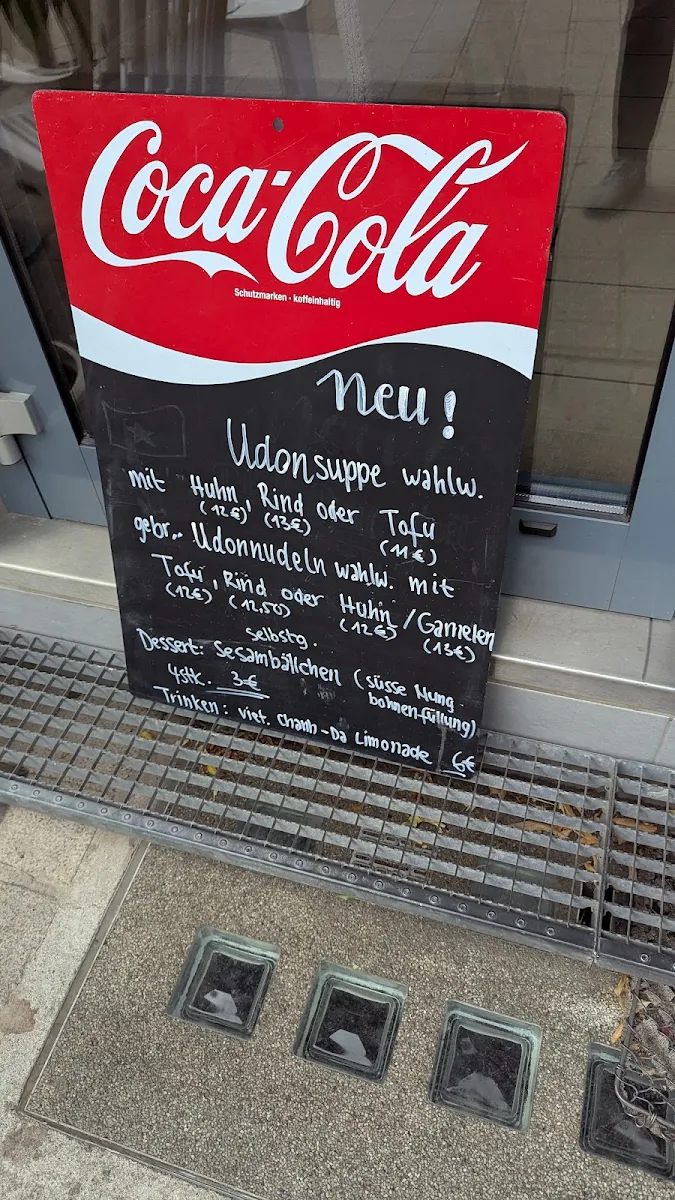 Coca-Cola
Schutzmarken · koffeinhaltig
Neu!
Udonsuppe wahlw.
mit Huhn, Rind oder Tofu
(12€) (13€) (11€)
gebr.. Udonnudeln wahlw. mit
Tofu, Rind oder Huhn / Garnelen
(12€) (12,50) (12€) (13€)
selbstg.
Dessert: Sesambällchen (süsse Mung-
4stk. 3€ bohnenfüllung)
Trinken: viet. Chanh-Da Limonade 6€